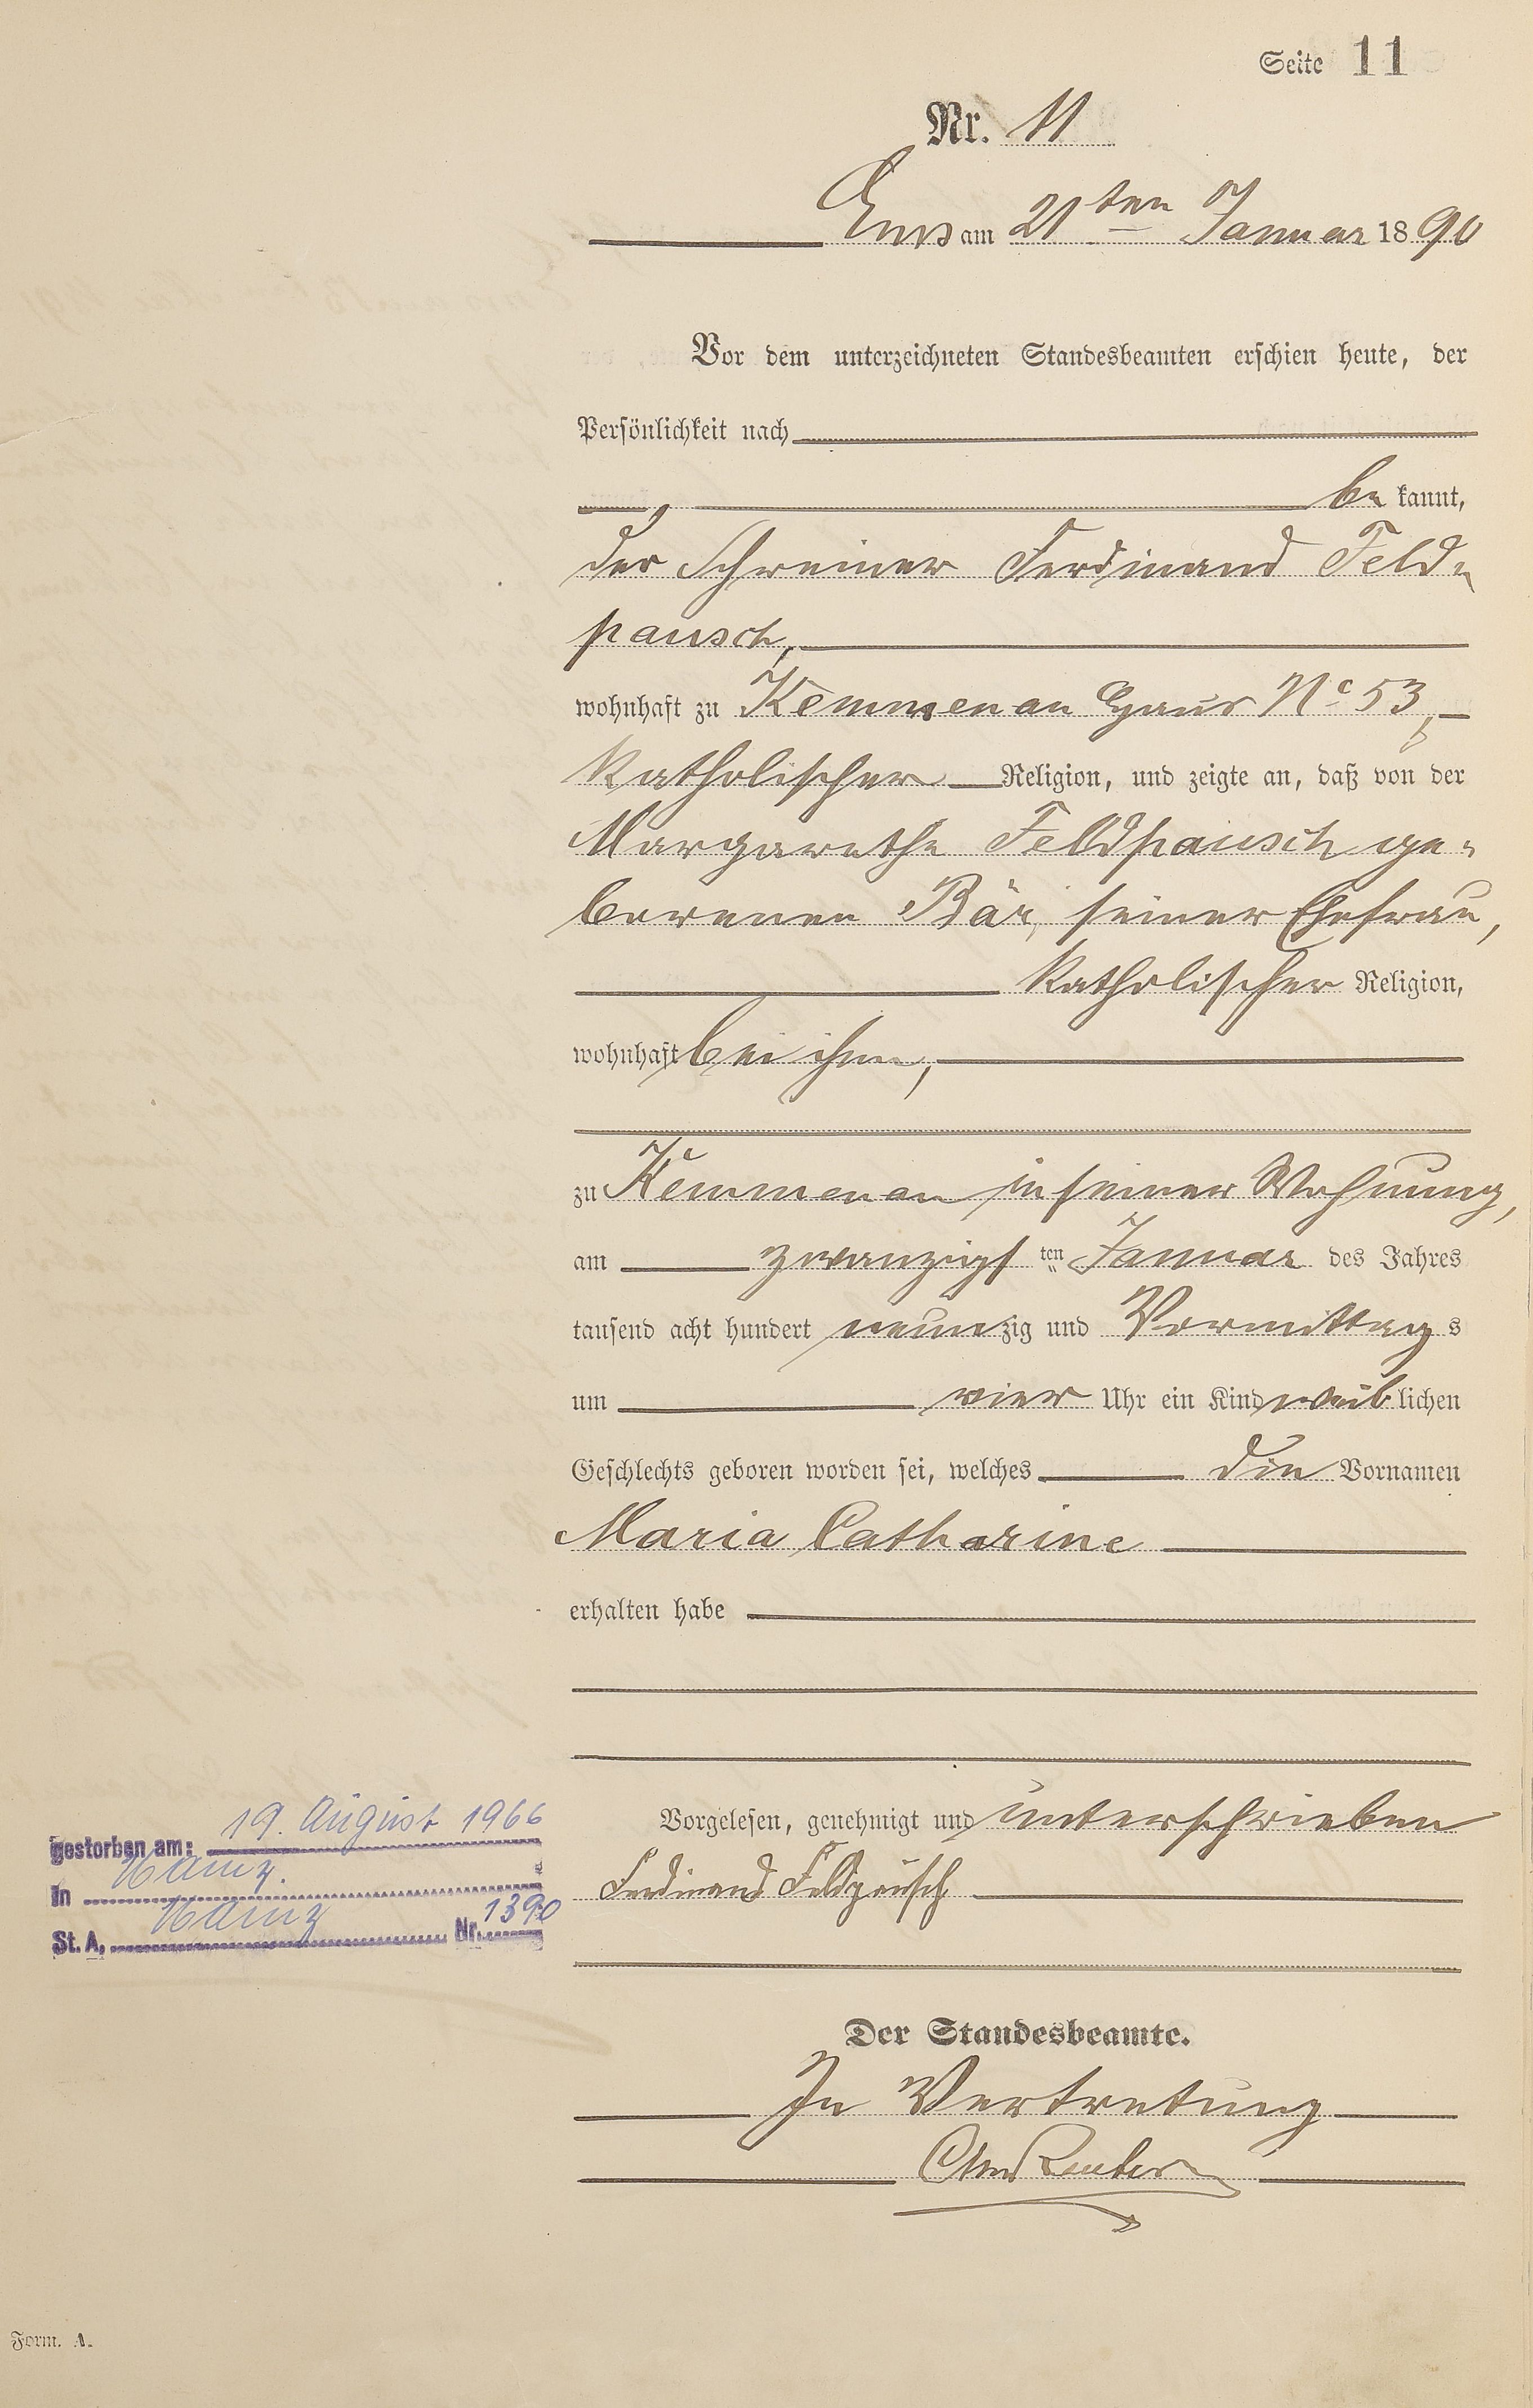 Seite 11
Nr. 11
Ems am 21ten Januar 1890
Vor dem unterzeichneten Standesbeamten erschien heute, der
Persönlichkeit nach
be kannt,
der Schreiner Ferdinand Feld-
pausch,
wohnhaft zu Kemmenau Haus No 53,
katholischer Religion, und zeigte an, daß von der
Margarethe Feldpausch ge-
borenen Bär, seiner Ehefrau,
katholischer Religion,
wohnhaft bei ihm,
zu Kemmenau in seiner Wohnung,
am zwanzigsten Januar des Jahres
tausend acht hundert neunzig und Vormittags
um vier Uhr ein Kind weiblichen
Geschlechts geboren worden sei, welches die Vornamen
Maria Catharine
erhalten habe
Vorgelesen, genehmigt und unterschrieben
Ferdinand Feldpausch
Der Standesbeamte.
In Vertretung
gestorben am: 19. August 1966
in Mainz.
St. A. Mainz Nr. 1390
Form. A.